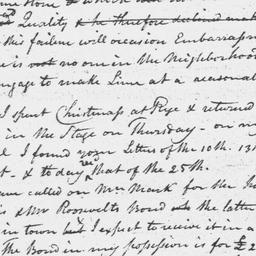 Quality & he therefore declined
this failure will occasion Embarrassm
e is not no one in the Neighborhood
ngage to make Lime at a reasonal
I spent Christmass at Rye & returned
in the Stage on Thursday - on my
I found your Letters of the 10th. 13t
t - & to day recd that of the 25th.
ave called on Mrs Mark for the
is & Mr Roosevelts Bond the latter
in town but I expect to receive it in a
The Bond in my possession is for £2